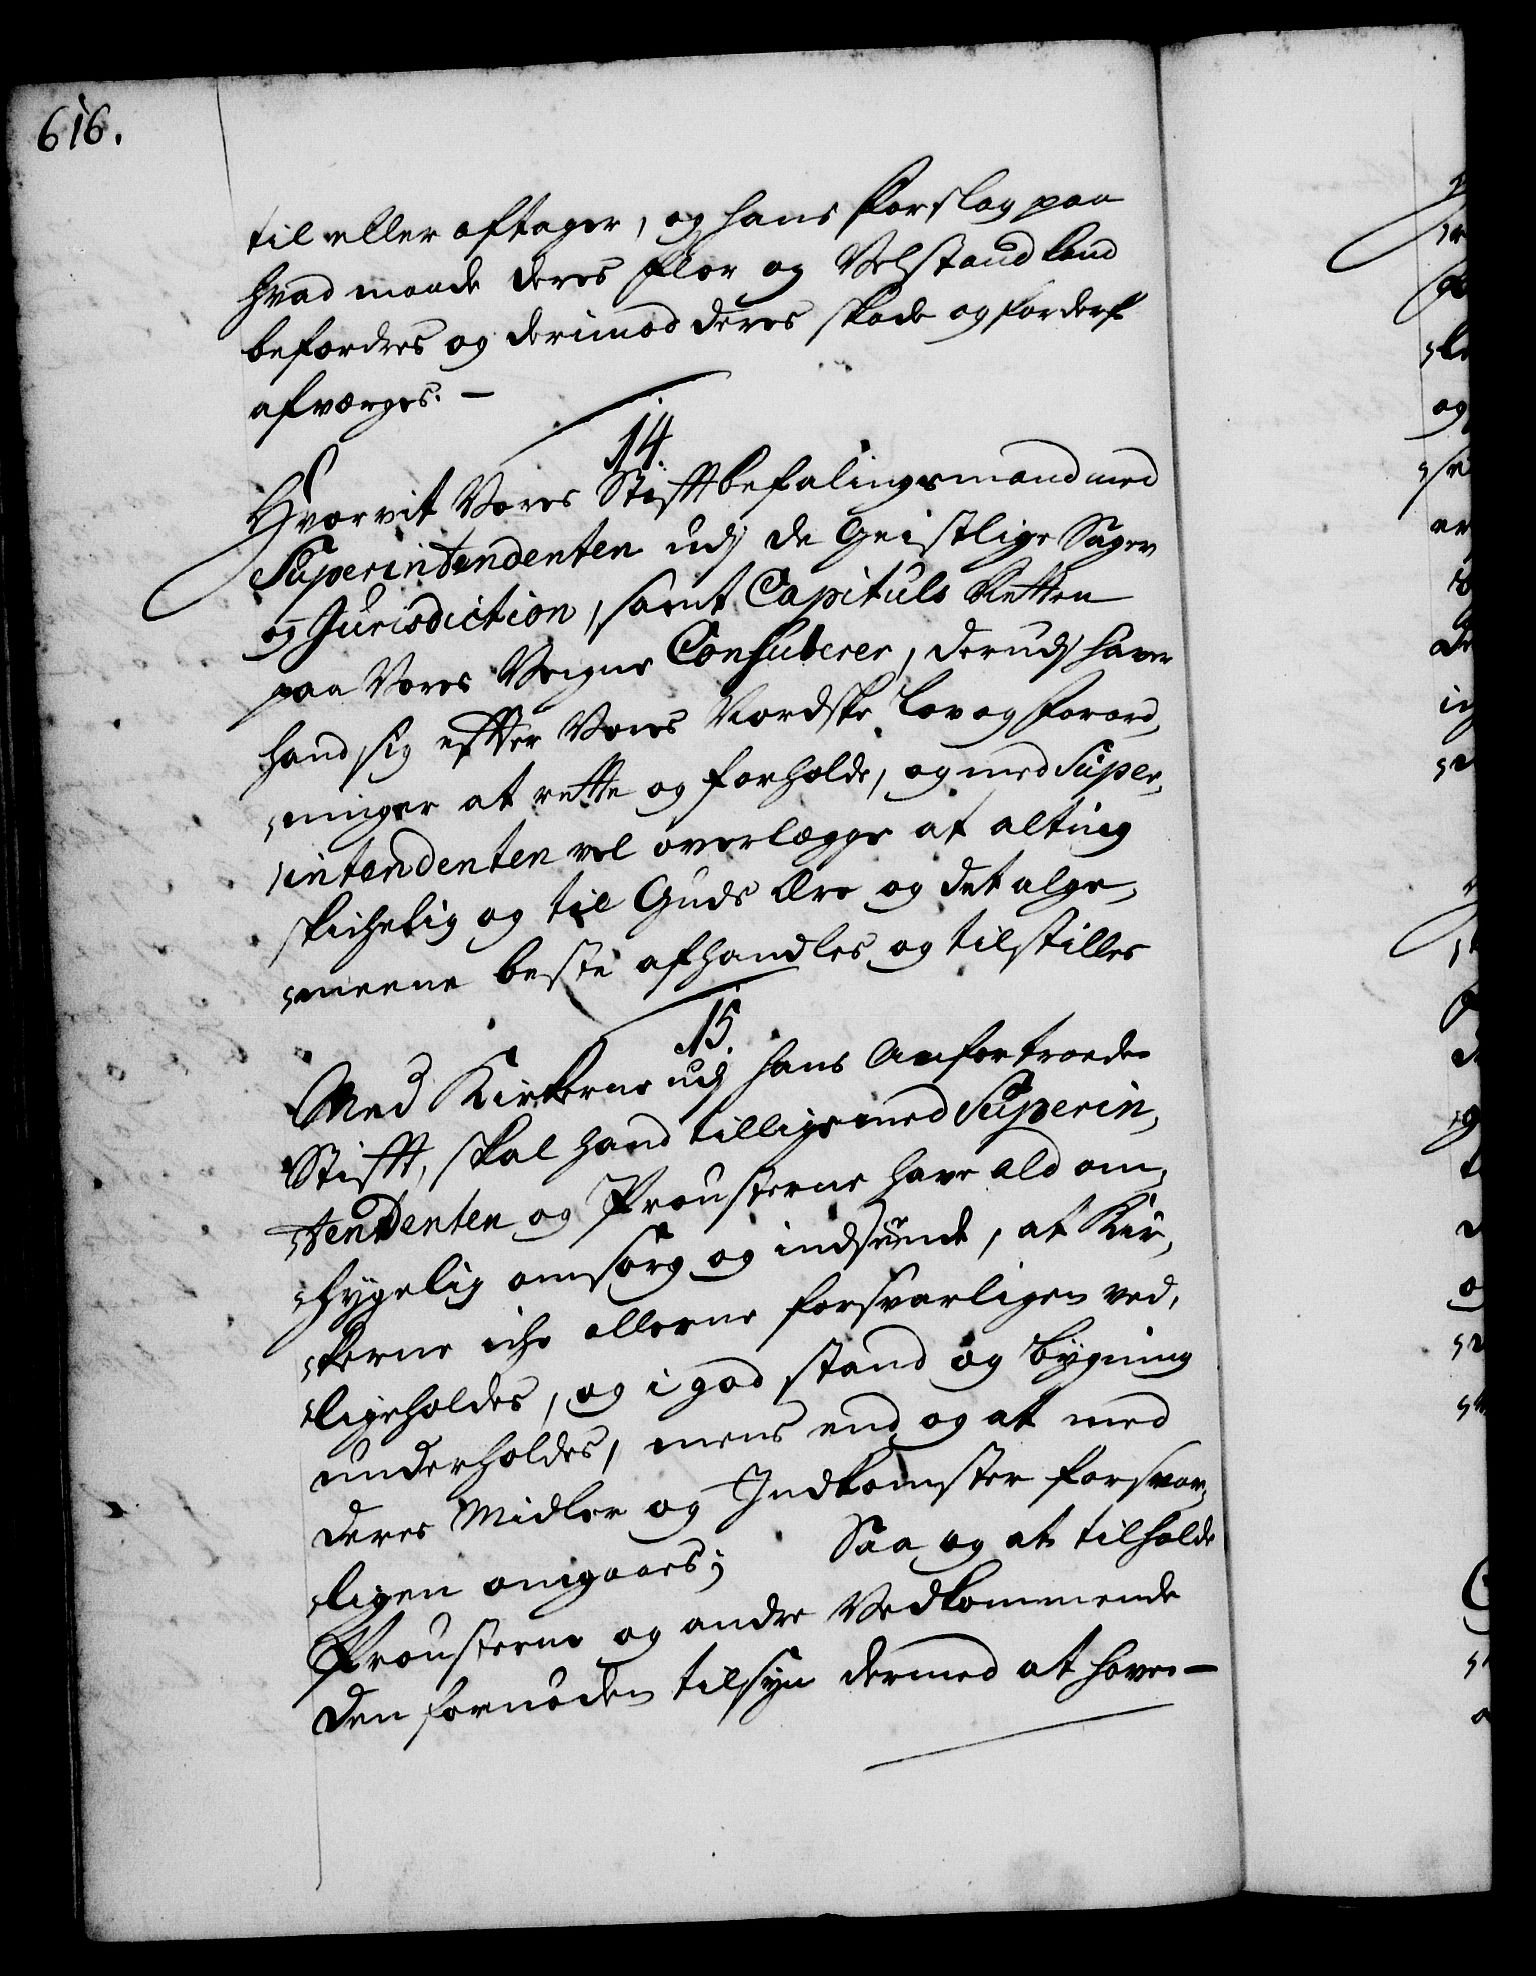 616.
til eller aftager, og hans Forslag paa
hvad maade deres Flor og Velstand kand
befordres og derimod deres skade og forderf
afværges. —
14.
Hvorvit Vores Stiftbefalingsmand med
Superintendenten udj de Geistlige Sager
og Jurisdiction, samt Capituls Retten
paa Vores Veigne Confuterer, derudj haver
hand sig efter Vores Nordske Lov og Forord,
,ninger at rette og forholde, og med Super,
,intendenten vel overlægge at alting
skichelig og til Guds Ære og det alge,
,meene beste afhandles og tilstilles
15.
Med Kirkerne udj hans Anfortroede
Stifft, skal hand tillige med Superin,
,tendenten og Prousterne have ald om,
,hygelig omsorg og indseende, at Kir,
,kerne iche alleene forsvarligen ved,
,ligeholdes, og i god stand og bygning
underholdes, mens end og at med
deres Midler og Indkomster forsvar,
,ligen omgaaes; Saa og at tilholde
Prousterne og andre Vedkommende
den fornøden tilsyn dermed at have —